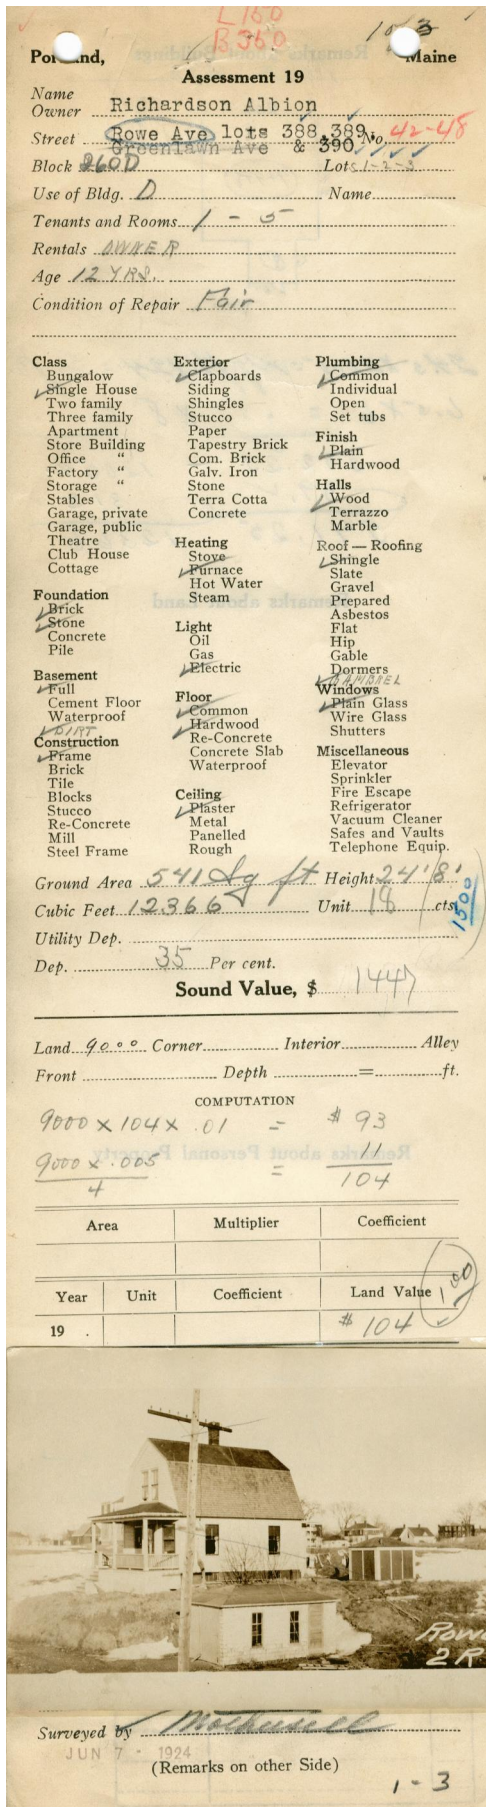 L 150
B 350
Portland, Maine
Assessment 19
Name
Owner Richardson Albion
Street Rowe Ave lots 388,389, No. 42-48
Greenlawn Ave & 390
Block 260D Lots 1-2-3
Use of Bldg. D Name
Tenants and Rooms 1 - 5
Rentals OWNER
Age 12 YRS.
Condition of Repair Fair
Class
Bungalow
Single House
Two family
Three family
Apartment
Store Building
Office "
Factory "
Storage "
Stables
Garage, private
Garage, public
Theatre
Club House
Cottage
Foundation
Brick
Stone
Concrete
Pile
Basement
Full
Cement Floor
Waterproof
DIRT
Construction
Frame
Brick
Tile
Blocks
Stucco
Re-Concrete
Mill
Steel Frame
Exterior
Clapboards
Siding
Shingles
Stucco
Paper
Tapestry Brick
Com. Brick
Galv. Iron
Stone
Terra Cotta
Concrete
Heating
Stove
Furnace
Hot Water
Steam
Light
Oil
Gas
Electric
Floor
Common
Hardwood
Re-Concrete
Concrete Slab
Waterproof
Ceiling
Plaster
Metal
Panelled
Rough
Plumbing
Common
Individual
Open
Set tubs
Finish
Plain
Hardwood
Halls
Wood
Terrazzo
Marble
Roof — Roofing
Shingle
Slate
Gravel
Prepared
Asbestos
Flat
Hip
Gable
Dormers
GAMBREL
Windows
Plain Glass
Wire Glass
Shutters
Miscellaneous
Elevator
Sprinkler
Fire Escape
Refrigerator
Vacuum Cleaner
Safes and Vaults
Telephone Equip.
Ground Area 541 Sq ft Height 24' 8'
Cubic Feet 12366 Unit 18 cts.
1500
Utility Dep.
Dep. 35 Per cent.
Sound Value, $ 1447
Land 9000 Corner Interior Alley
Front Depth = ft.
COMPUTATION
9000 x 104 x .01 = $ 93
9000 x .005 = 11
4 104
Area Multiplier Coefficient
Year Unit Coefficient Land Value
100
19 . $ 104
Surveyed by
JUN 7 - 1924
(Remarks on other Side)
1 - 3